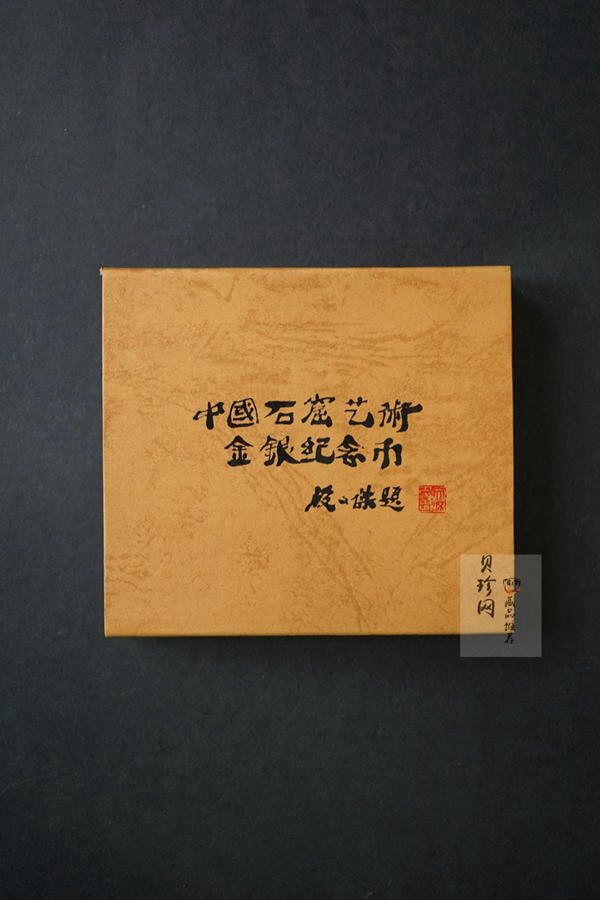 中國石窟艺術
金銀纪念币
段文傑题
贝珍网
藏品推荐